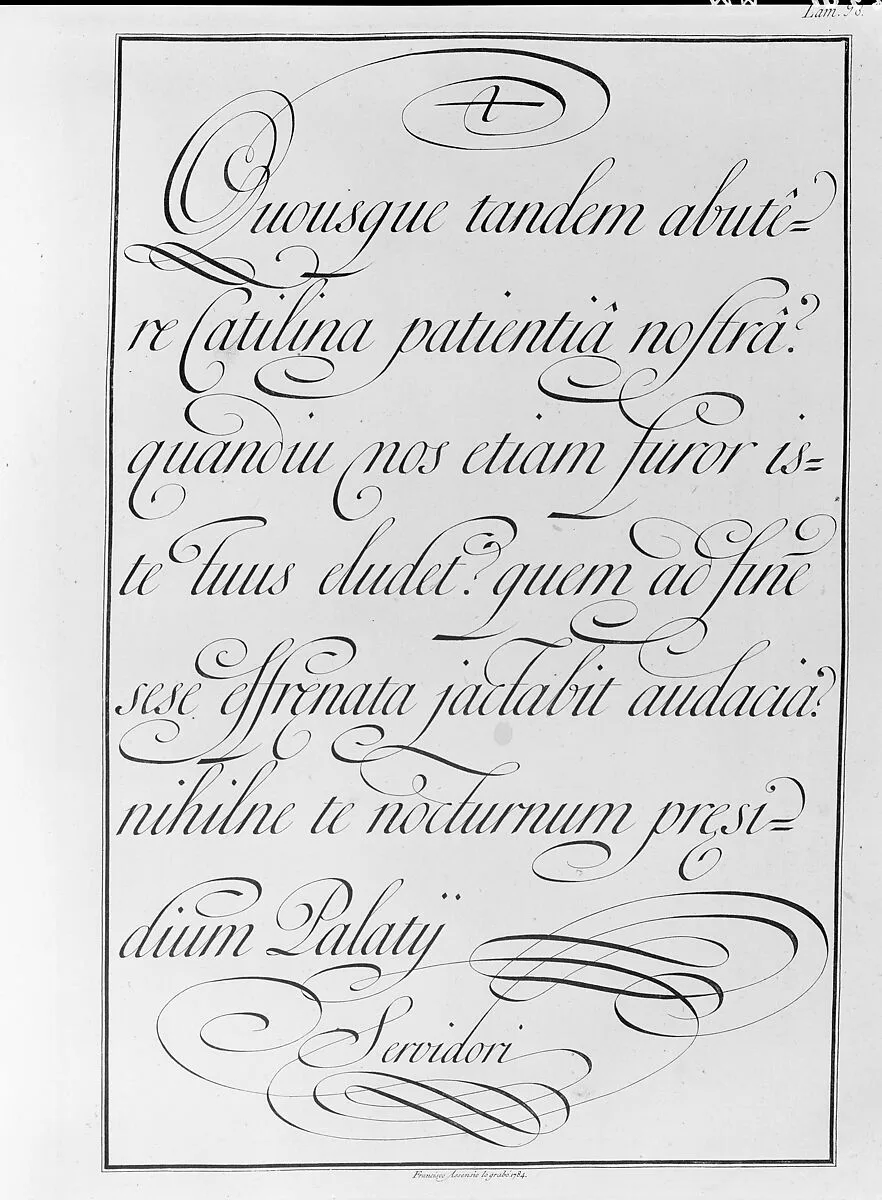 Lam. 98.
Quousque tandem abutê=
re Catilina patientiâ noſtrâ?
quandiu nos etiam furor is=
te tuus eludet? quem ad finē
sese effrenata jactabit audacia?
nihilne te nocturnum pręsi=
dium Palatÿ
Servidori
Francisco Assensio lo grabó. 1784.